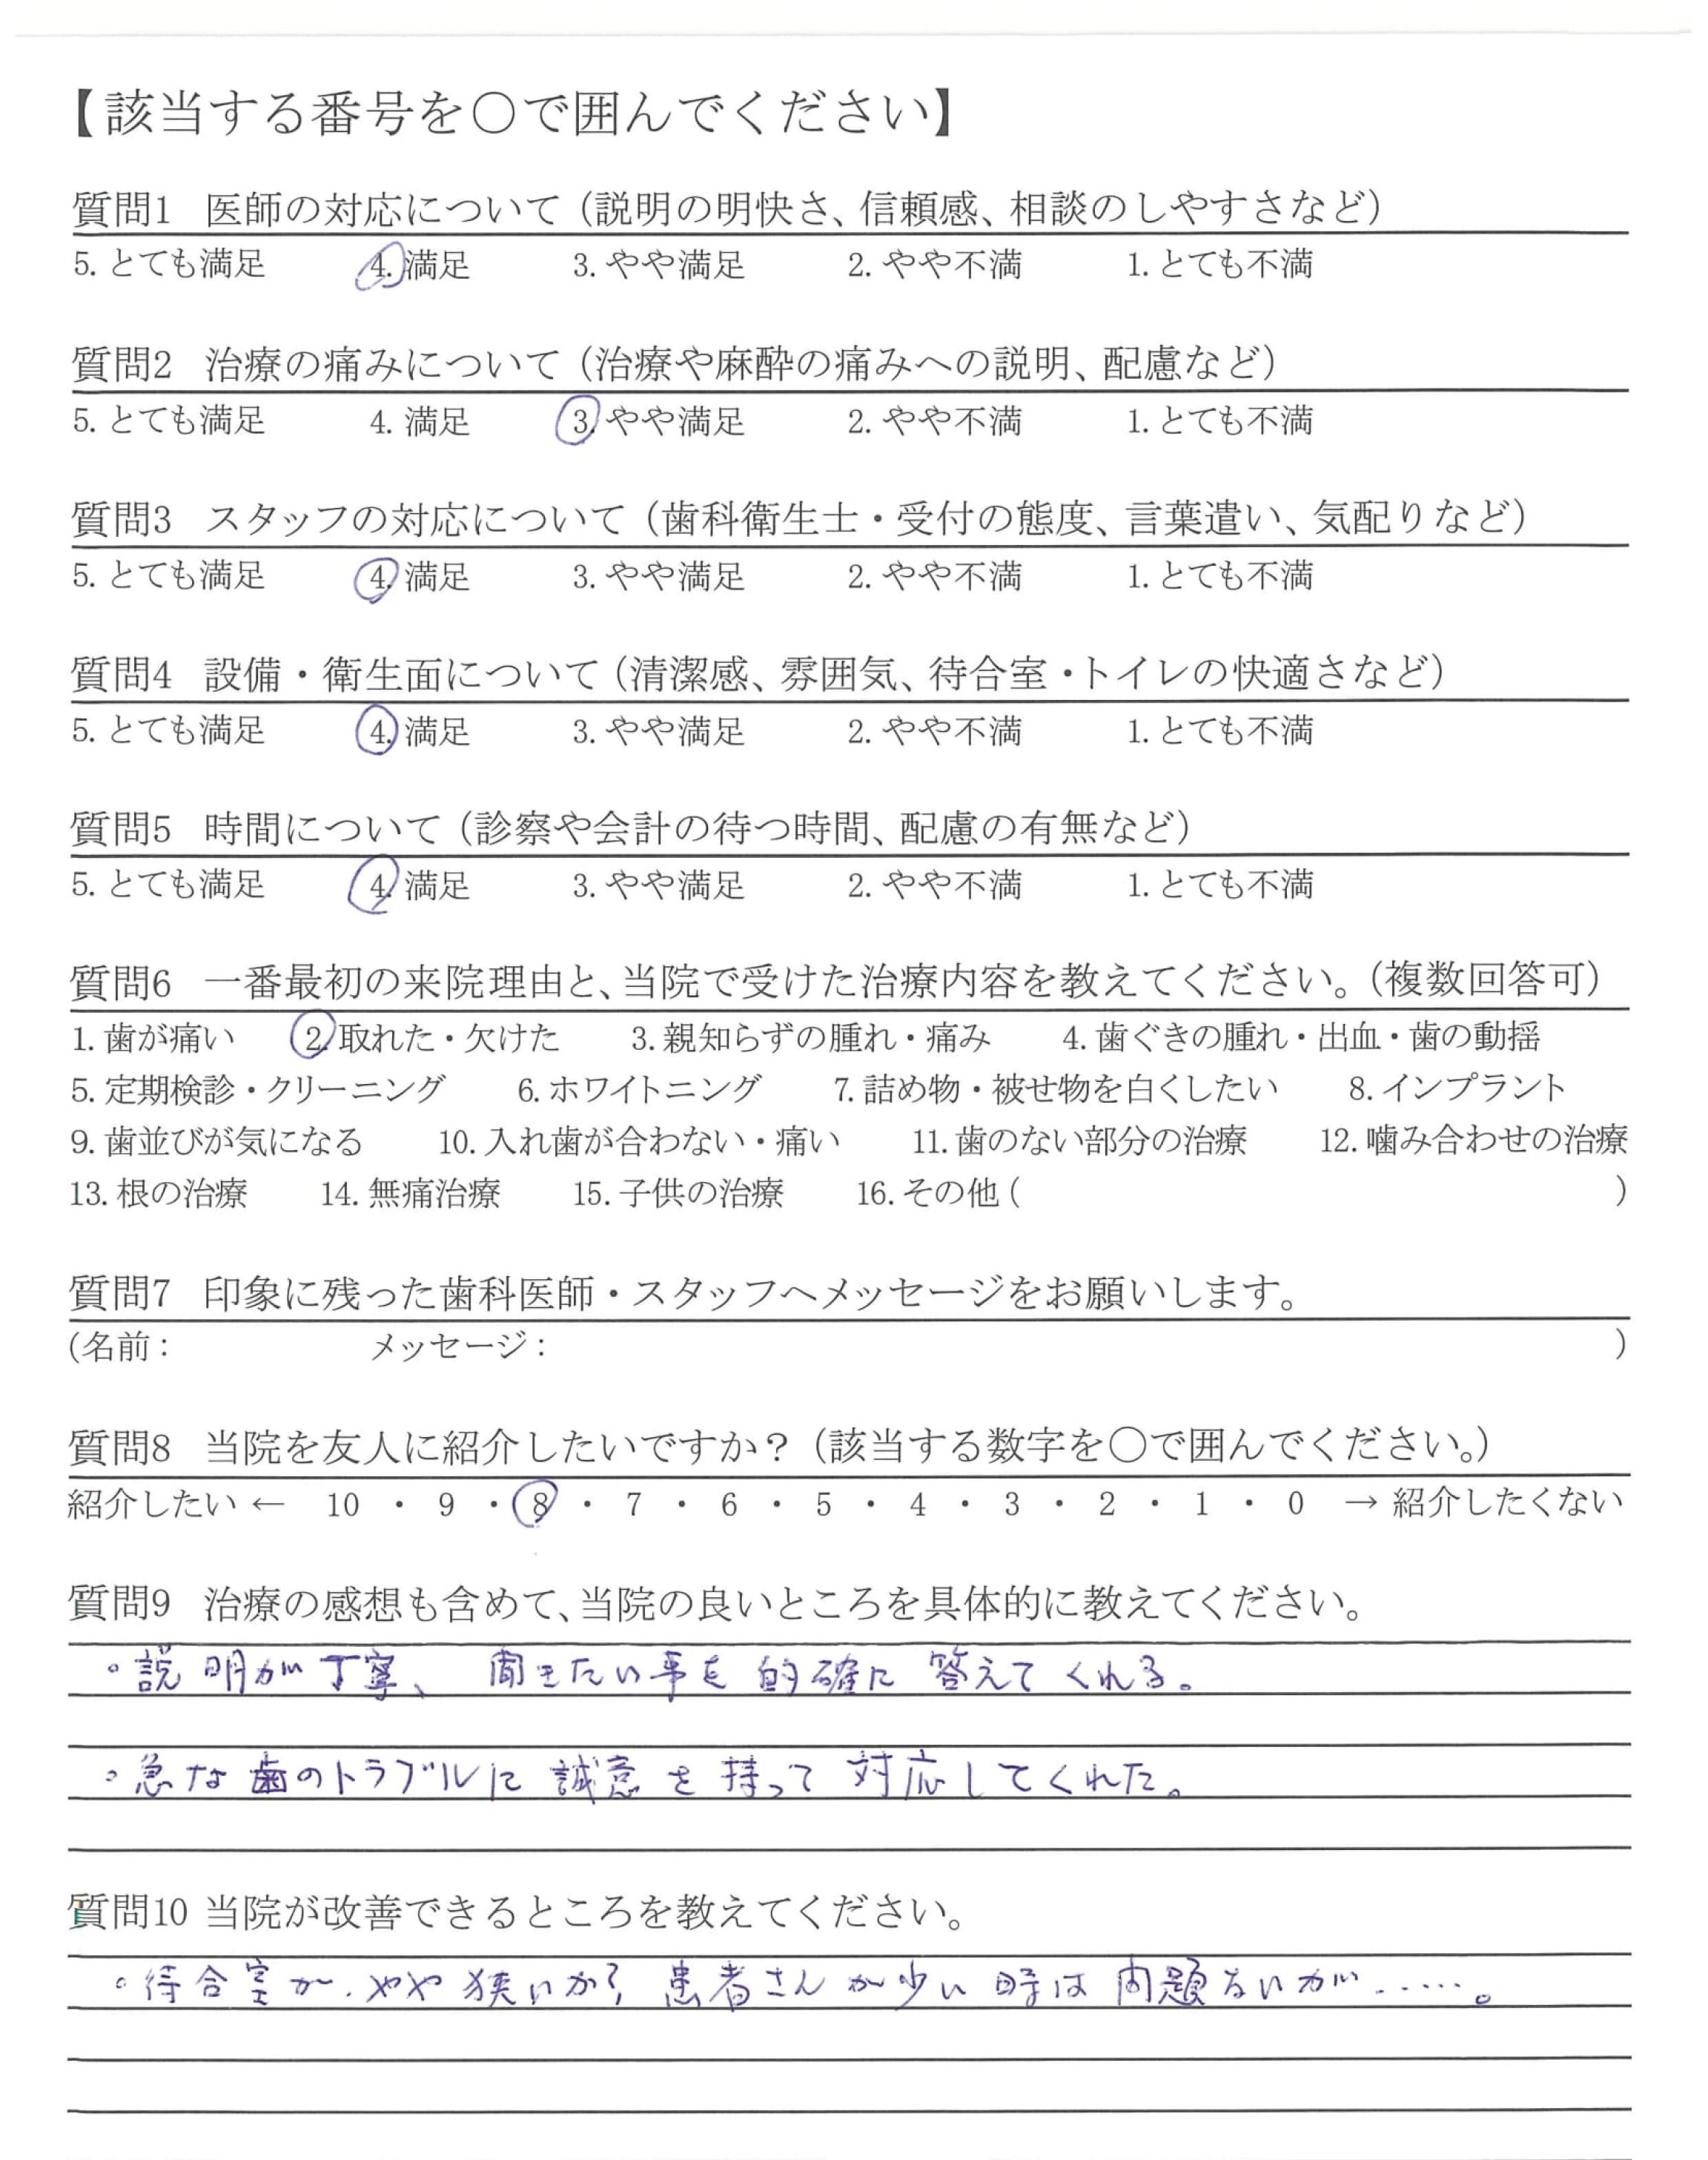 【該当する番号を〇で囲んでください】
質問1 医師の対応について（説明の明快さ、信頼感、相談のしやすさなど）
5. とても満足 4. 満足 3. やや満足 2. やや不満 1. とても不満
質問2 治療の痛みについて（治療や麻酔の痛みへの説明、配慮など）
5. とても満足 4. 満足 3. やや満足 2. やや不満 1. とても不満
質問3 スタッフの対応について（歯科衛生士・受付の態度、言葉遣い、気配りなど）
5. とても満足 4. 満足 3. やや満足 2. やや不満 1. とても不満
質問4 設備・衛生面について（清潔感、雰囲気、待合室・トイレの快適さなど）
5. とても満足 4. 満足 3. やや満足 2. やや不満 1. とても不満
質問5 時間について（診察や会計の待つ時間、配慮の有無など）
5. とても満足 4. 満足 3. やや満足 2. やや不満 1. とても不満
質問6 一番最初の来院理由と、当院で受けた治療内容を教えてください。（複数回答可）
1. 歯が痛い 2. 取れた・欠けた 3. 親知らずの腫れ・痛み 4. 歯ぐきの腫れ・出血・歯の動揺
5. 定期検診・クリーニング 6. ホワイトニング 7. 詰め物・被せ物を白くしたい 8. インプラント
9. 歯並びが気になる 10. 入れ歯が合わない・痛い 11. 歯のない部分の治療 12. 噛み合わせの治療
13. 根の治療 14. 無痛治療 15. 子供の治療 16. その他（ ）
質問7 印象に残った歯科医師・スタッフへメッセージをお願いします。
（名前： メッセージ： ）
質問8 当院を友人に紹介したいですか？（該当する数字を〇で囲んでください。）
紹介したい ← 10 ・ 9 ・ 8 ・ 7 ・ 6 ・ 5 ・ 4 ・ 3 ・ 2 ・ 1 ・ 0 → 紹介したくない
質問9 治療の感想も含めて、当院の良いところを具体的に教えてください。
。説明が丁寧、聞きたい事を的確に答えてくれる。
。急な歯のトラブルに誠意を持って対応してくれた。
質問10 当院が改善できるところを教えてください。
。待合室が、やや狭いか？患者さんが少い時は問題ないが……。